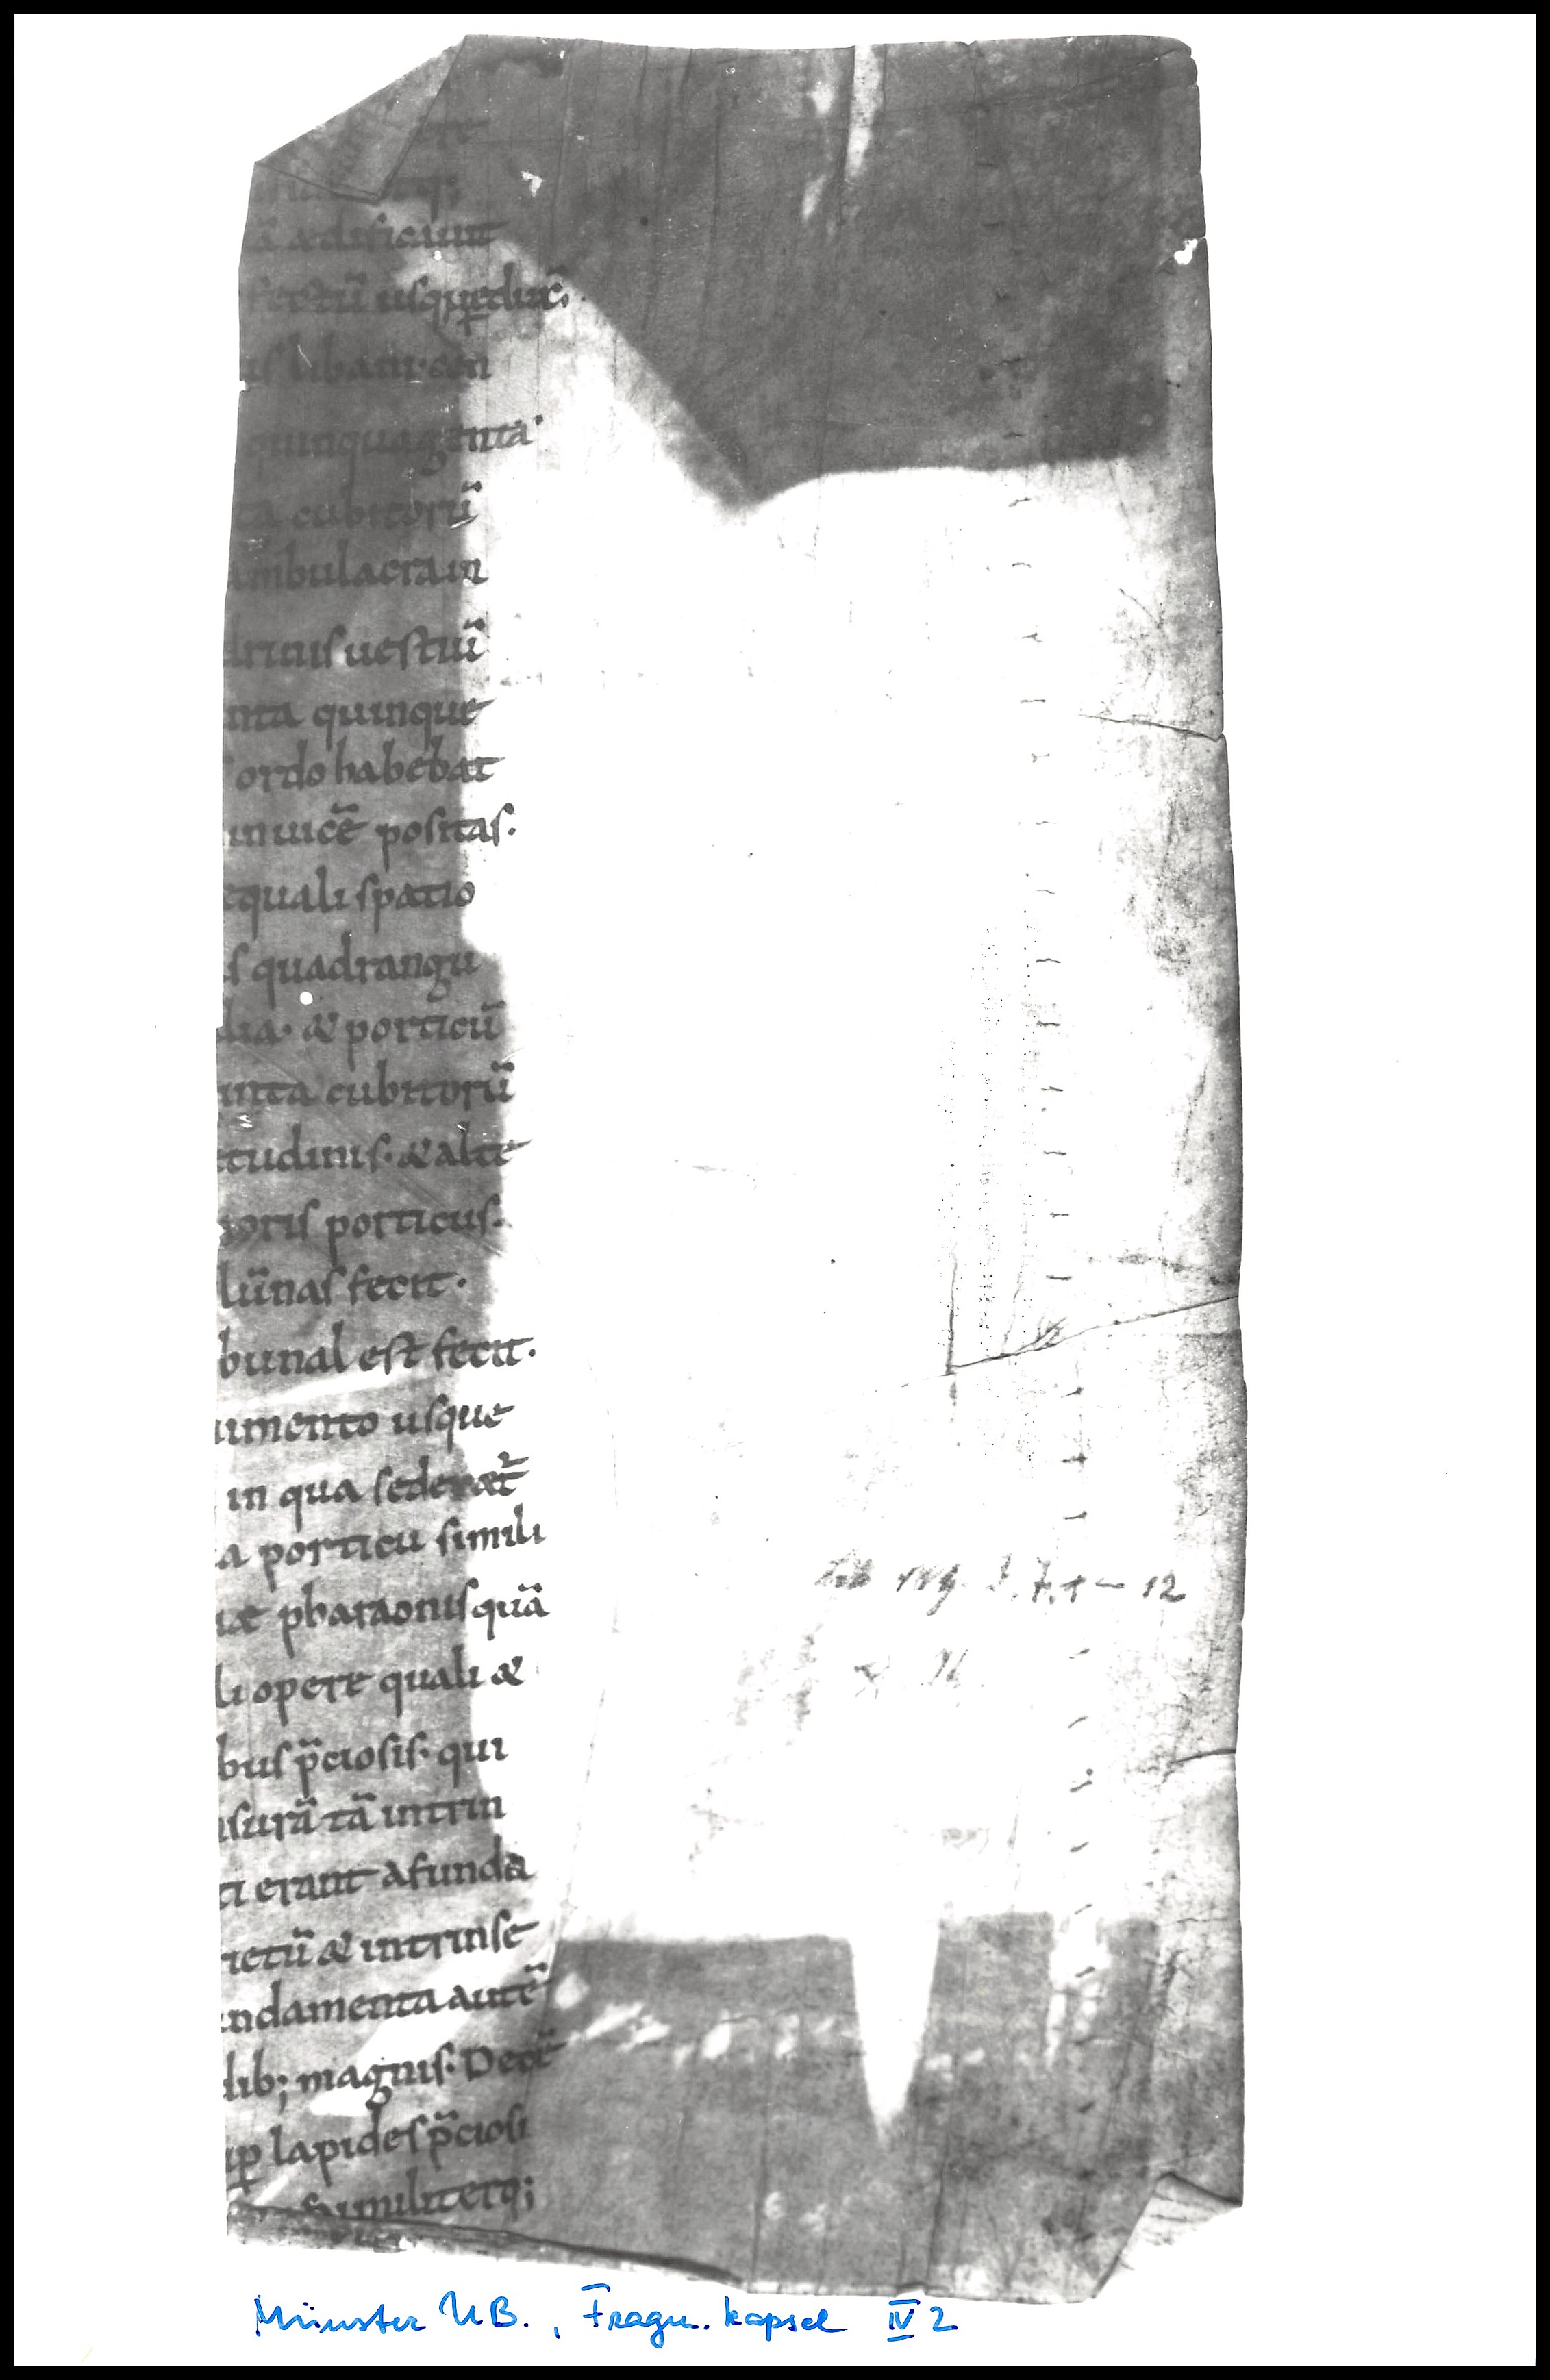 q;
ā ædificauit
fectū usq; pdux.
is libani con
quinquaginta
ta cubitorū
ambulacra in
drinis uestiū
nta quinque
ordo habebat
inuicē positas.
equali spatio
s quadrangu
lia. & porticū
inta cubitorū
tudinis. & alte
ioris porticus.
lūnas fecit.
bunal est fecit.
uimento usque
in qua sederet̄
a porticu simili
iæ pharaonis quā
li opere quali &
bus p̄ciosis. qui
nsurā tā intrin
ti erant a funda
rietū & intrinse
undamenta autē
dib; magnis. Decē
up̱ lapides p̄ciosi
similiterq;
reg. 3. 7. 1 – 12
Münster UB., Fragm. kapsel IV 2